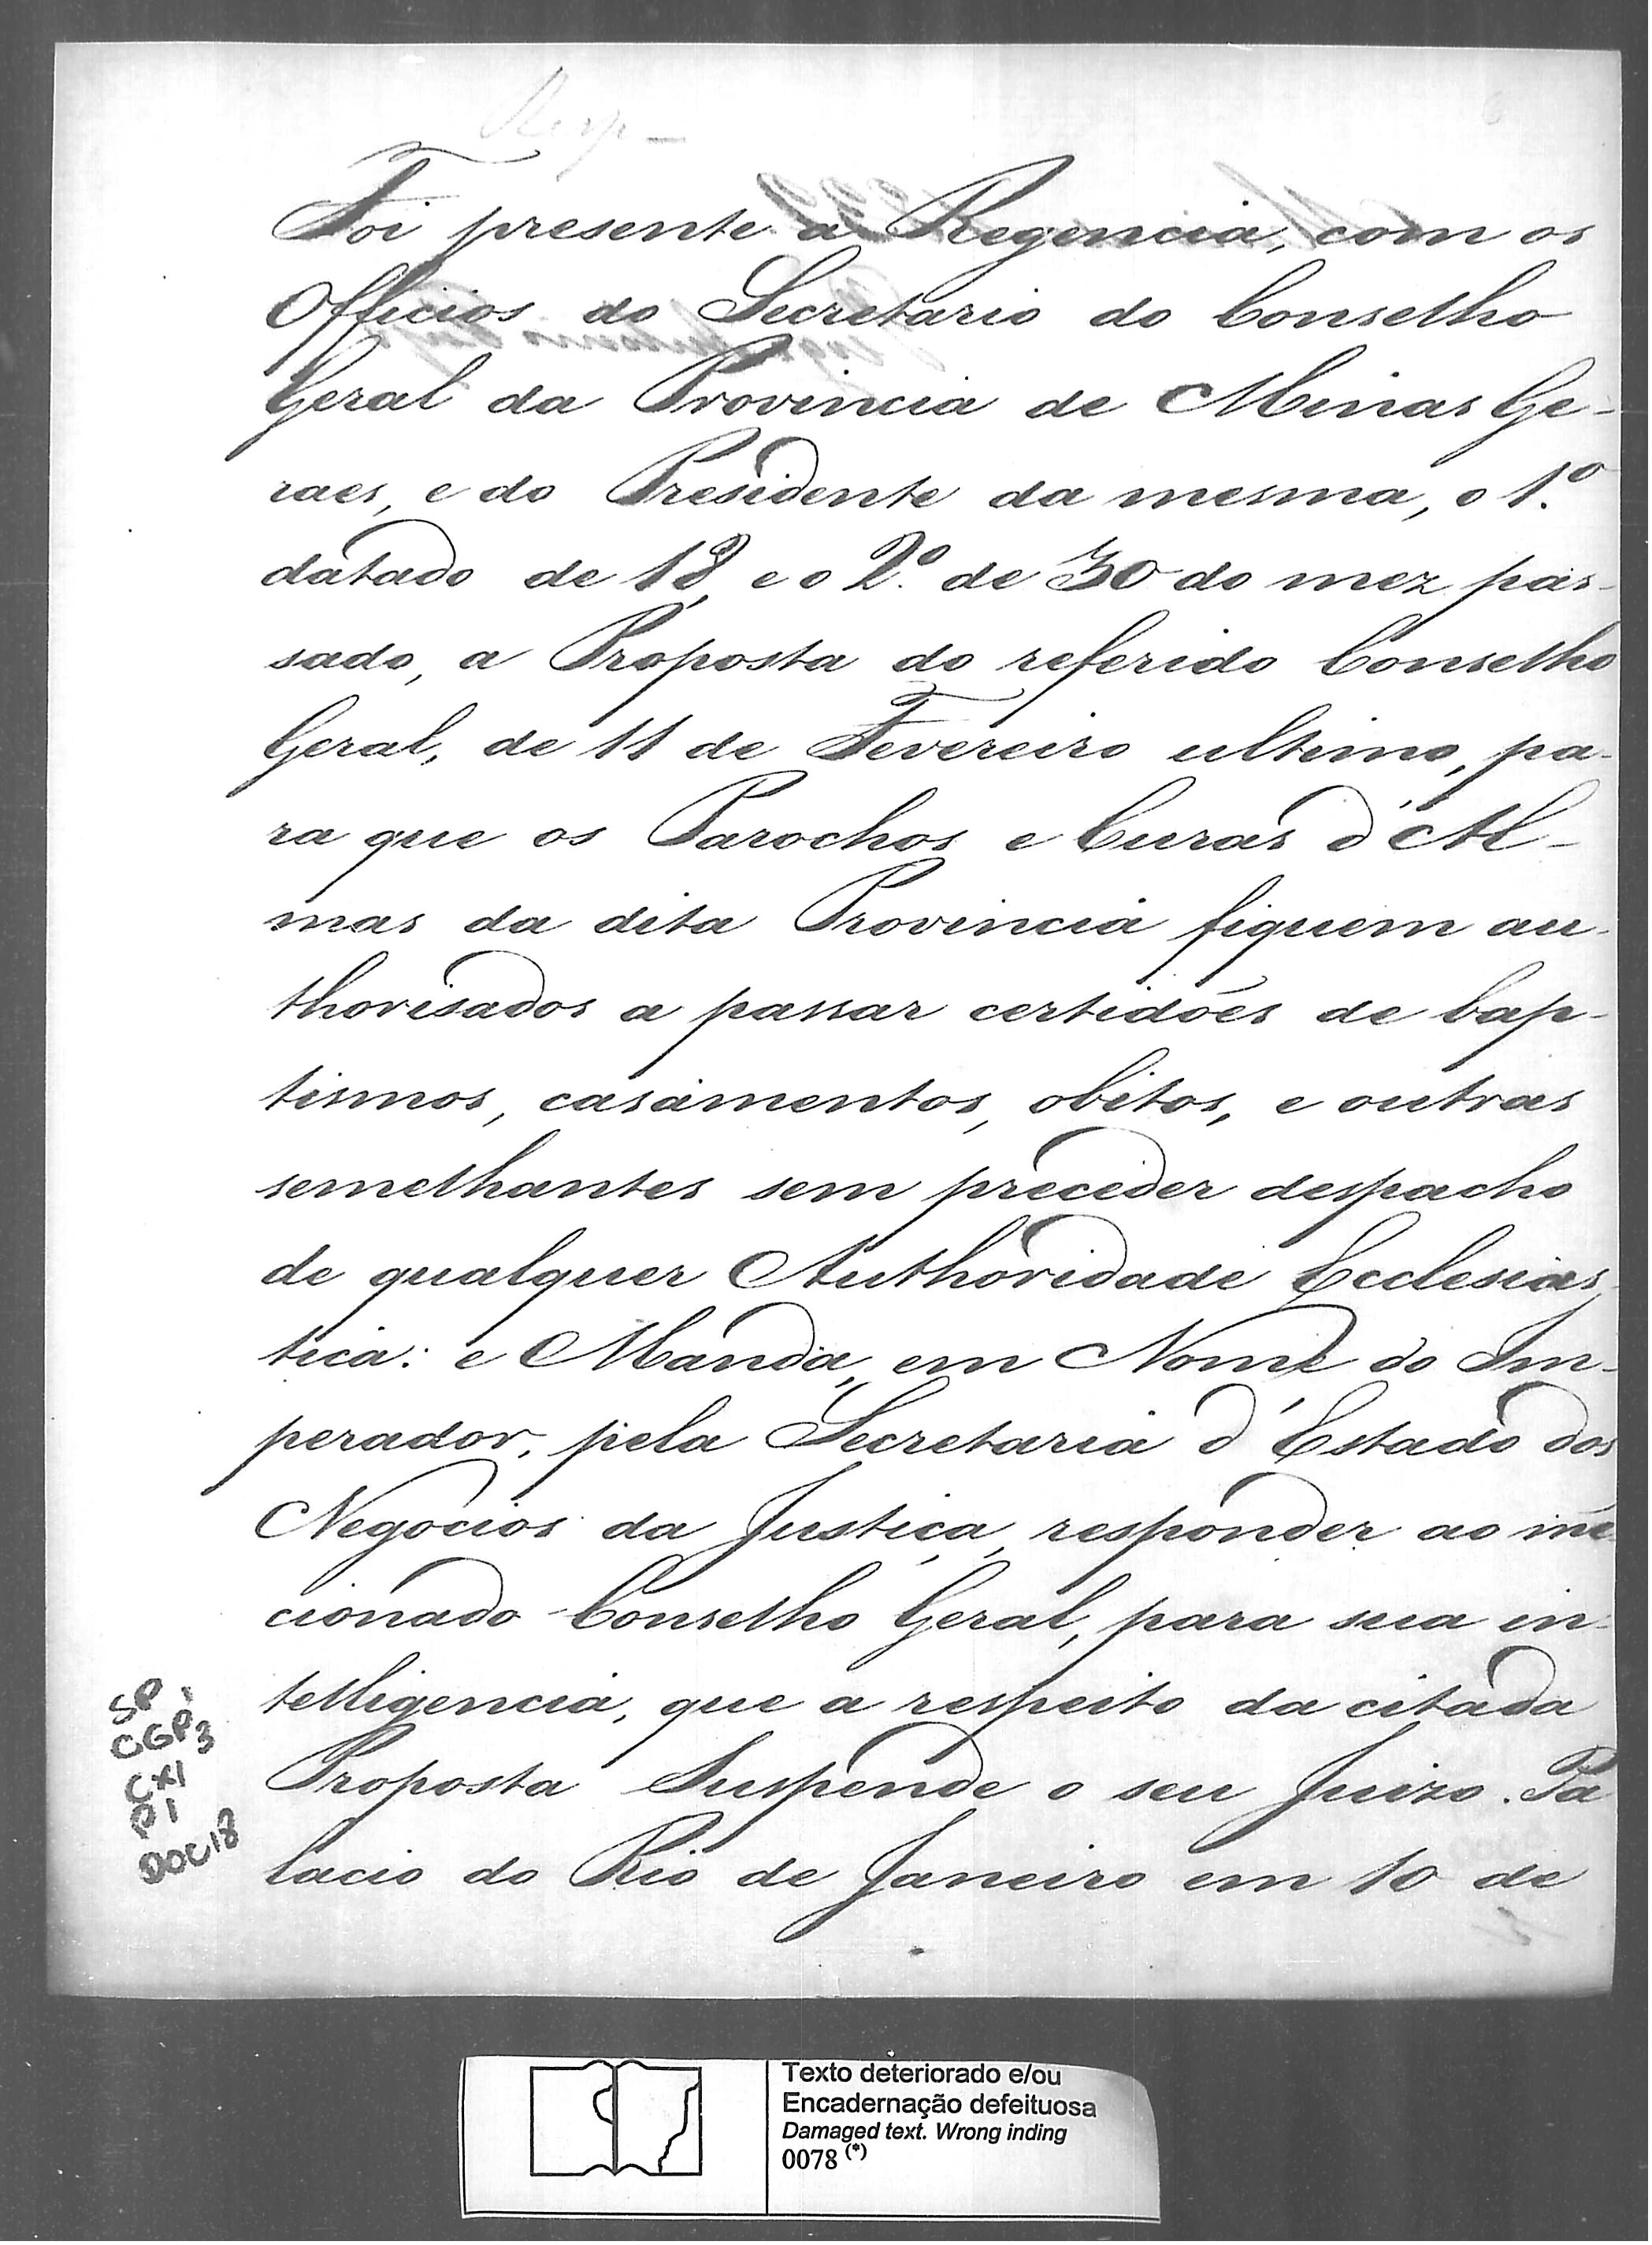 Resp
Foi presente a Regencia, com os
Officios do Secretario do Conselho
Geral da Provincia de Minas Ge-
raes, e do Presidente da mesma, o 1.º
datado de 18, e o 2.º de 30 do mez pas-
sado, a Proposta do referido Conselho
Geral, de 11 de Fevereiro ultimo, pa-
ra que os Parochos e Curas d'Al-
mas da dita Provincia fiquem au-
thorisados a passar certidões de bap-
tismos, casamentos, obitos, e outras
semelhantes sem preceder despacho
de qualquer Authoridade Ecclesias-
tica: e Manda, em Nome do Im-
perador, pela Secretaria d'Estado dos
Negocios da Justiça, responder ao me
cionado Conselho Geral, para sua in-
telligencia, que a respeito da citada
Proposta Suspende o seu Juizo. Pa
lacio do Rio de Janeiro em 10 de
SP
CGP, 3
CX1
P1
DOC18
Texto deteriorado e/ou
Encadernação defeituosa
Damaged text. Wrong inding
0078 (*)